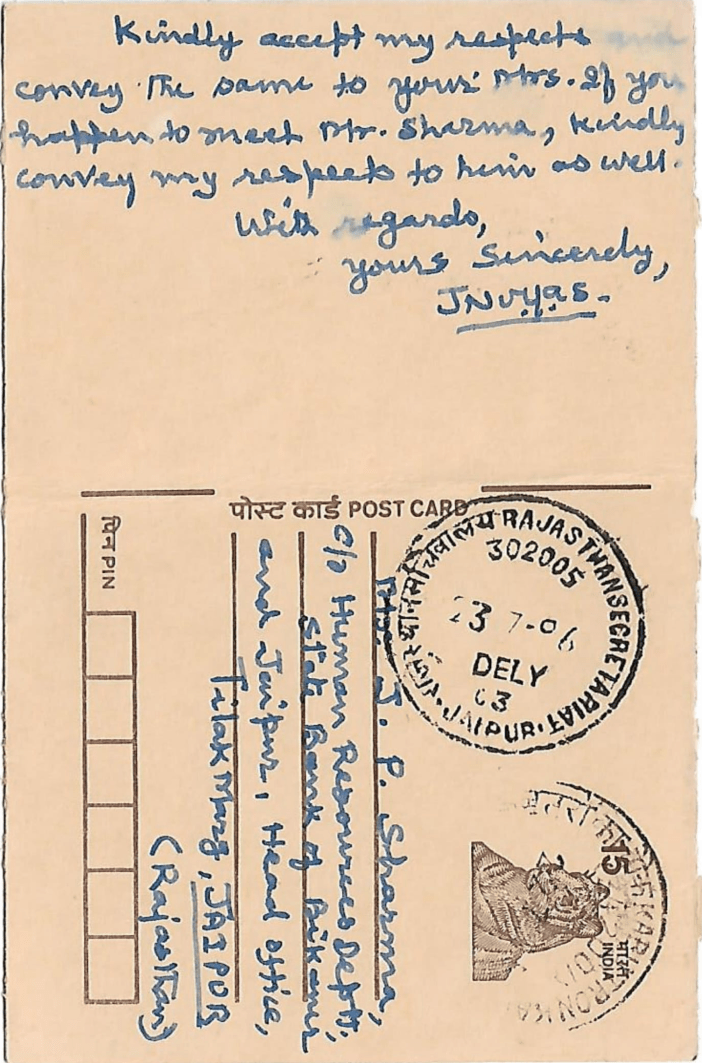 Kindly accept my respects and
convey the same to your Mrs. If you
happen to meet Mr. Sharma, kindly
convey my respects to him as well.
With regards,
yours Sincerely,
JNvyas.
पोस्ट कार्ड POST CARD
पिन PIN
Mr. J. P. Sharma,
c/o Human Resources Deptt.,
State Bank of Bikaner
and Jaipur, Head office,
Tilak Marg, JAIPUR
(Rajasthan)
राजस्थान सचिवालय RAJASTHAN SECRETARIAT
302005
23 7-06
DELY
JAIPUR
75
भारत
INDIA